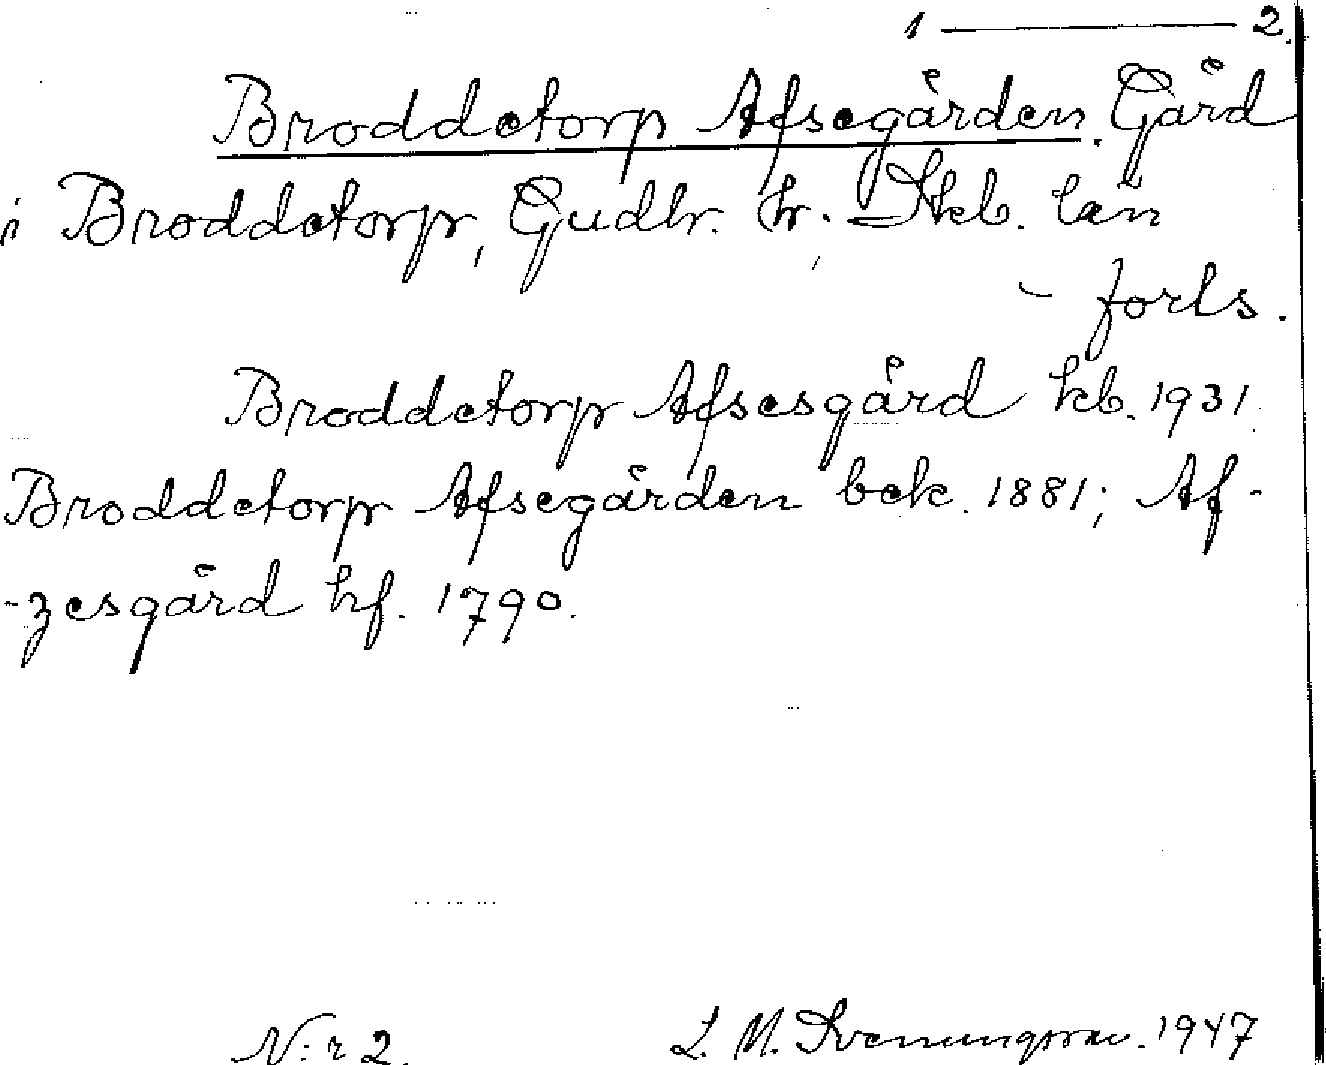 1 ——— 2.
Broddetorp Afsegården. Gård
i Broddetorp, Gudh. hr. Skb. län
- forts.
Broddetorp Afsesgård kb. 1931.
Broddetorp Afsegården bek. 1881; Af-
-zesgård hf. 1790.
N:r 2. L. M. Svenungsson. 1947